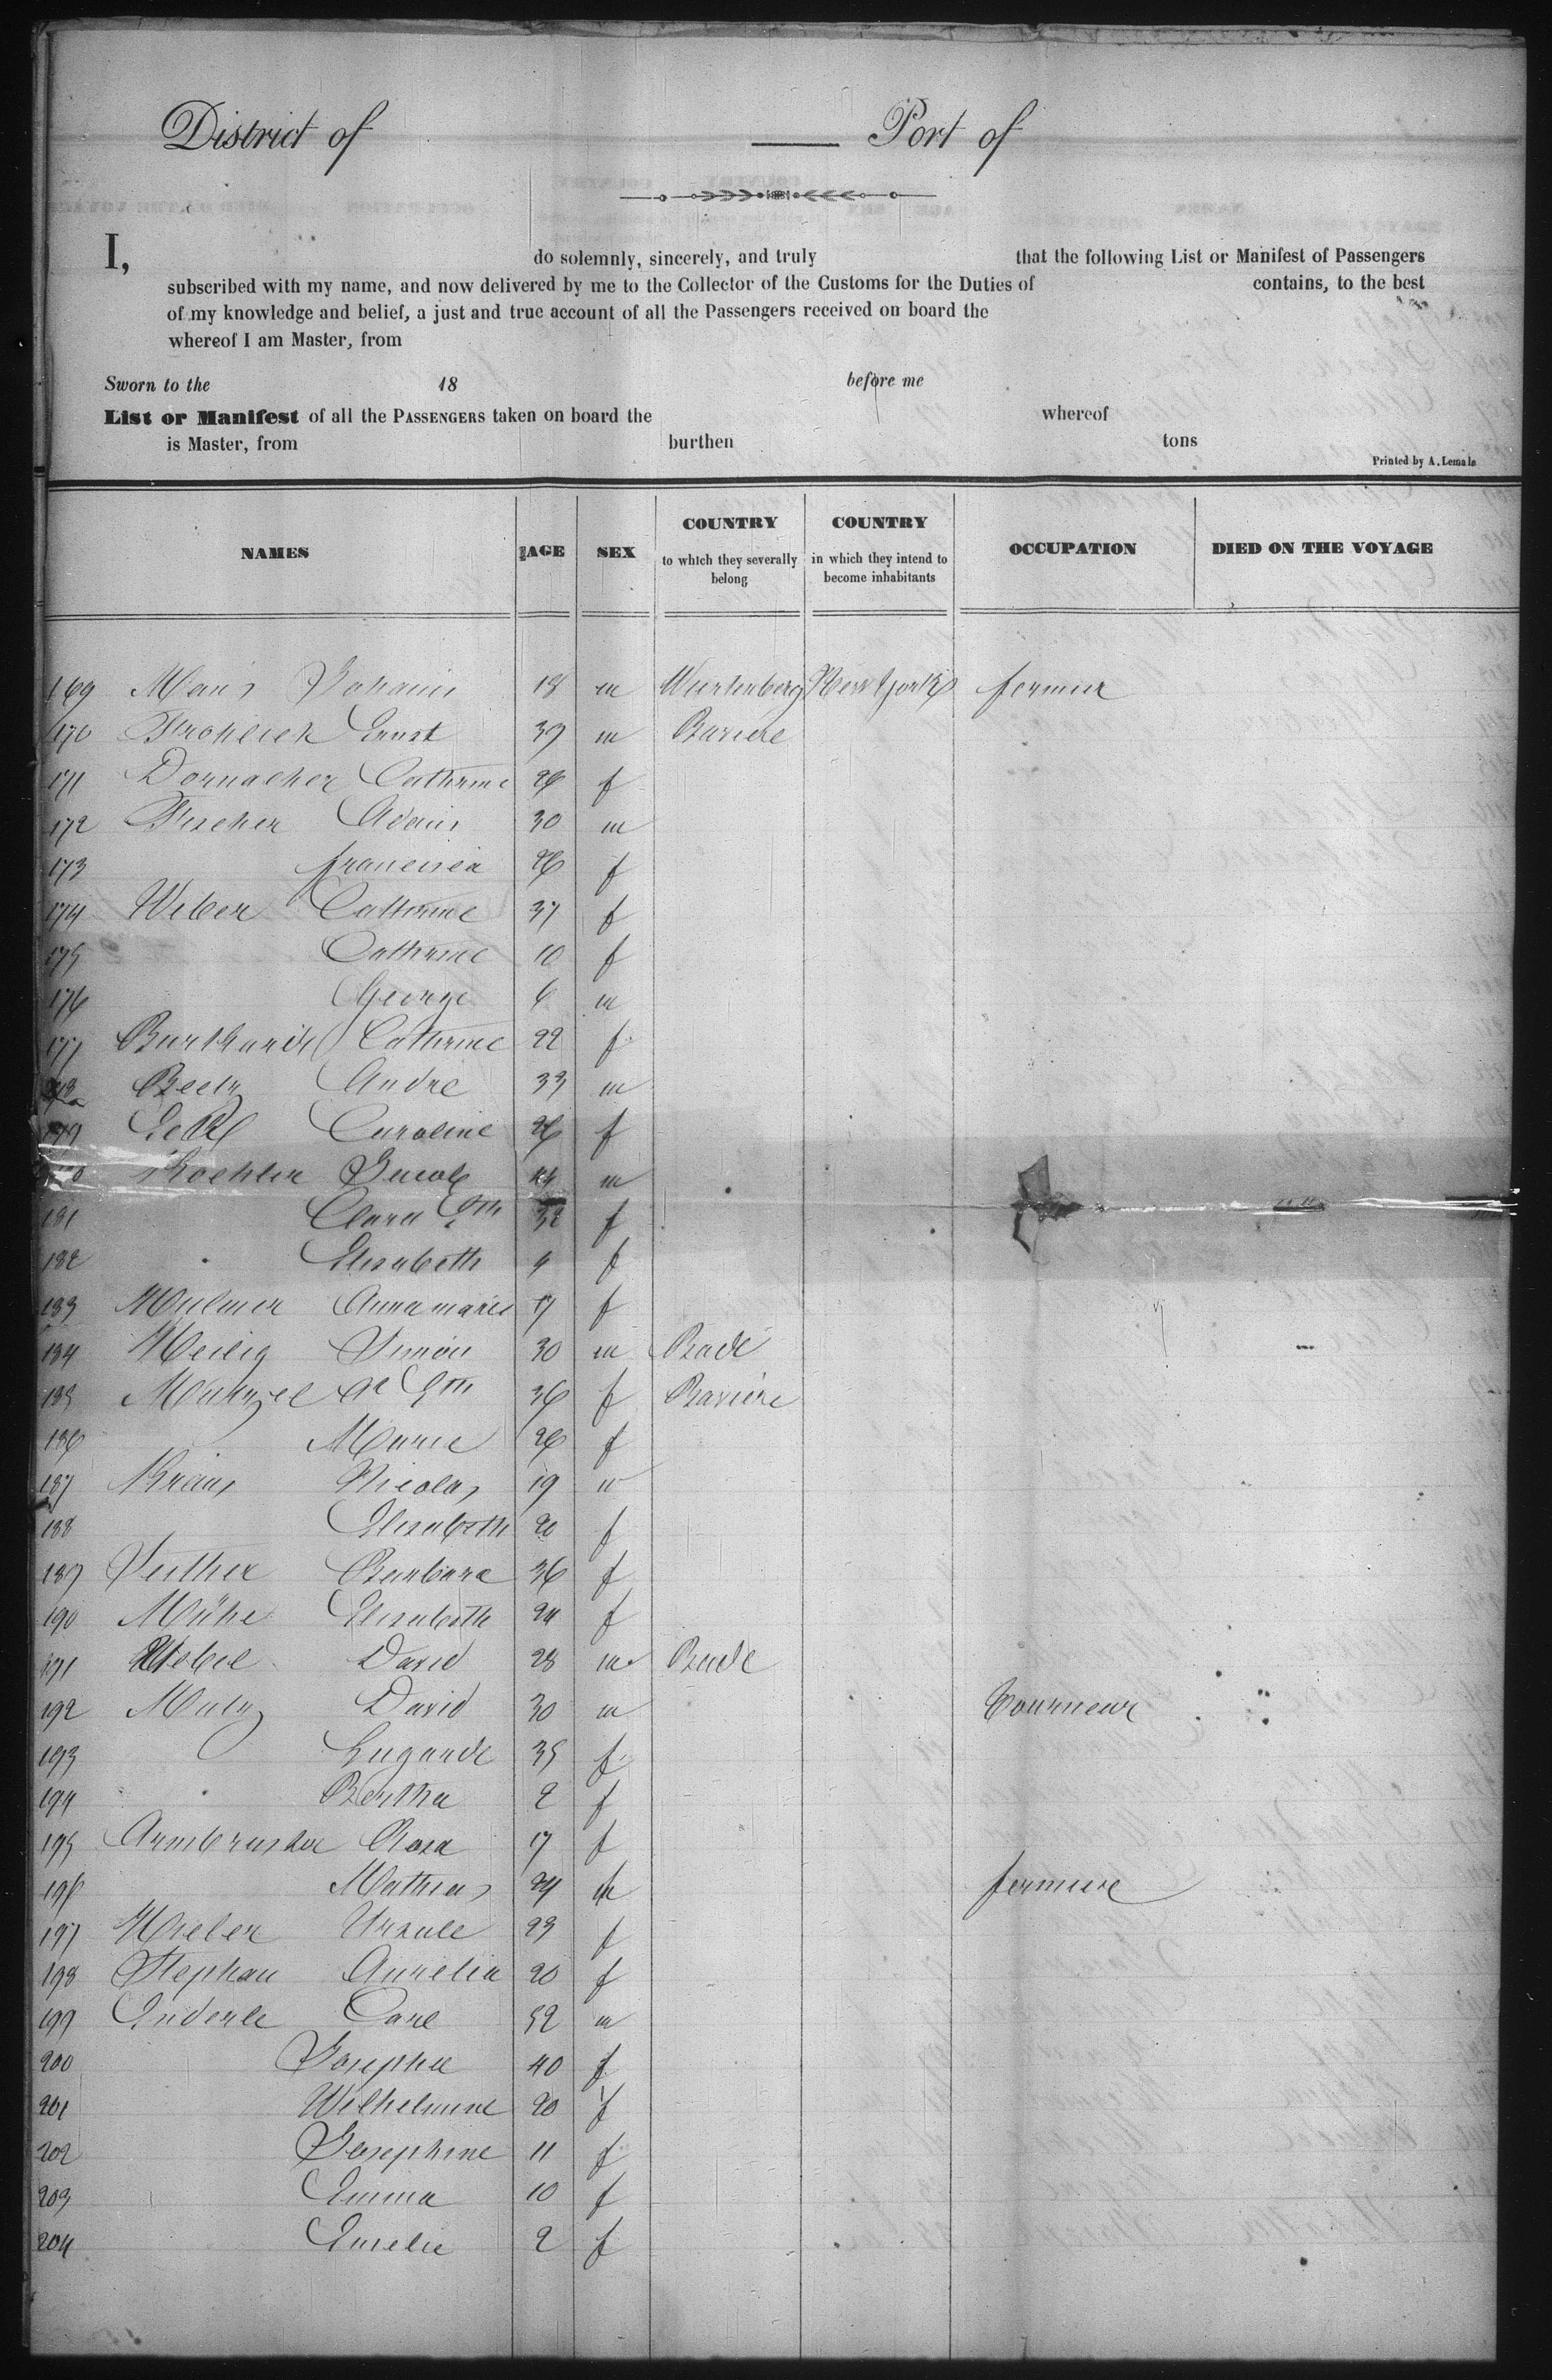 District of Port of
I, do solemnly, sincerely, and truly that the following List or Manifest of Passengers
subscribed with my name, and now delivered by me to the Collector of the Customs for the Duties of contains, to the best
of my knowledge and belief, a just and true account of all the Passengers received on board the
whereof I am Master, from
Sworn to the 18 before me
List or Manifest of all the PASSENGERS taken on board the whereof
is Master, from burthen tons
Printed by A. Lemale
NAMES AGE SEX COUNTRY to which they severally belong COUNTRY in which they intend to become inhabitants OCCUPATION DIED ON THE VOYAGE
169 18 m Wurtenberg New York
170 Frohlich Ernst 39 m Baviere
171 Dornacher Catherine 26 f
172 Fischer Adam 30 m
173 26 f
174 Weber Catherine 37 f
175 Catherine 10 f
176 George 6 m
177 Burkhardt Catherine 22 f
Beetz André 33 m
179 Caroline 26 f
Koehler Jacob m
181 Clara 32 f
182 Elisabeth f
183 Annamarie 17 f
184 Heilig Simon 30 m Bade
185 36 f Baviere
186 Marie 26 f
187 Nicolas 19 m
188 Elisabeth 20 f
189 Barbara 36 f
190 Elisabeth 24 f
191 David 28 m Bade
192 David 30 m Tourneur
193 35 f
194 Bertha 2 f
195 Armbruster Rosa 17 f
196 Mathias 24 m
197 Ursule 23 f
198 Stephan Aurelia 20 f
199 Enderle Carl 52 m
200 40 f
201 Wilhelmine 20 f
202 Josephine 11 f
203 Emma 10 f
204 Emelie 2 f